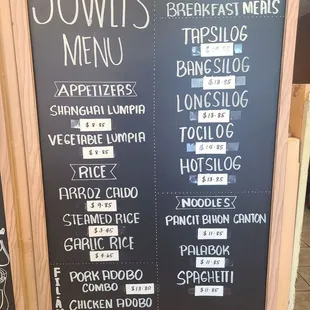 JOWITS
MENU
APPETIZERS
SHANGHAI LUMPIA
$ 8.85
VEGETABLE LUMPIA
$ 8.85
RICE
ARROZ CALDO
$ 9.85
STEAMED RICE
$ 3.45
GARLIC RICE
$ 4.65
PORK ADOBO
COMBO $ 13.80
CHICKEN ADOBO
BREAKFAST MEALS
TAPSILOG
BANGSILOG
$ 13.85
LONGSILOG
$ 13.85
TOCILOG
$ 14.85
HOTSILOG
$ 13.85
NOODLES
PANCIT BIHON CANTON
$ 11.85
PALABOK
$ 11.85
SPAGHETTI
$ 11.85